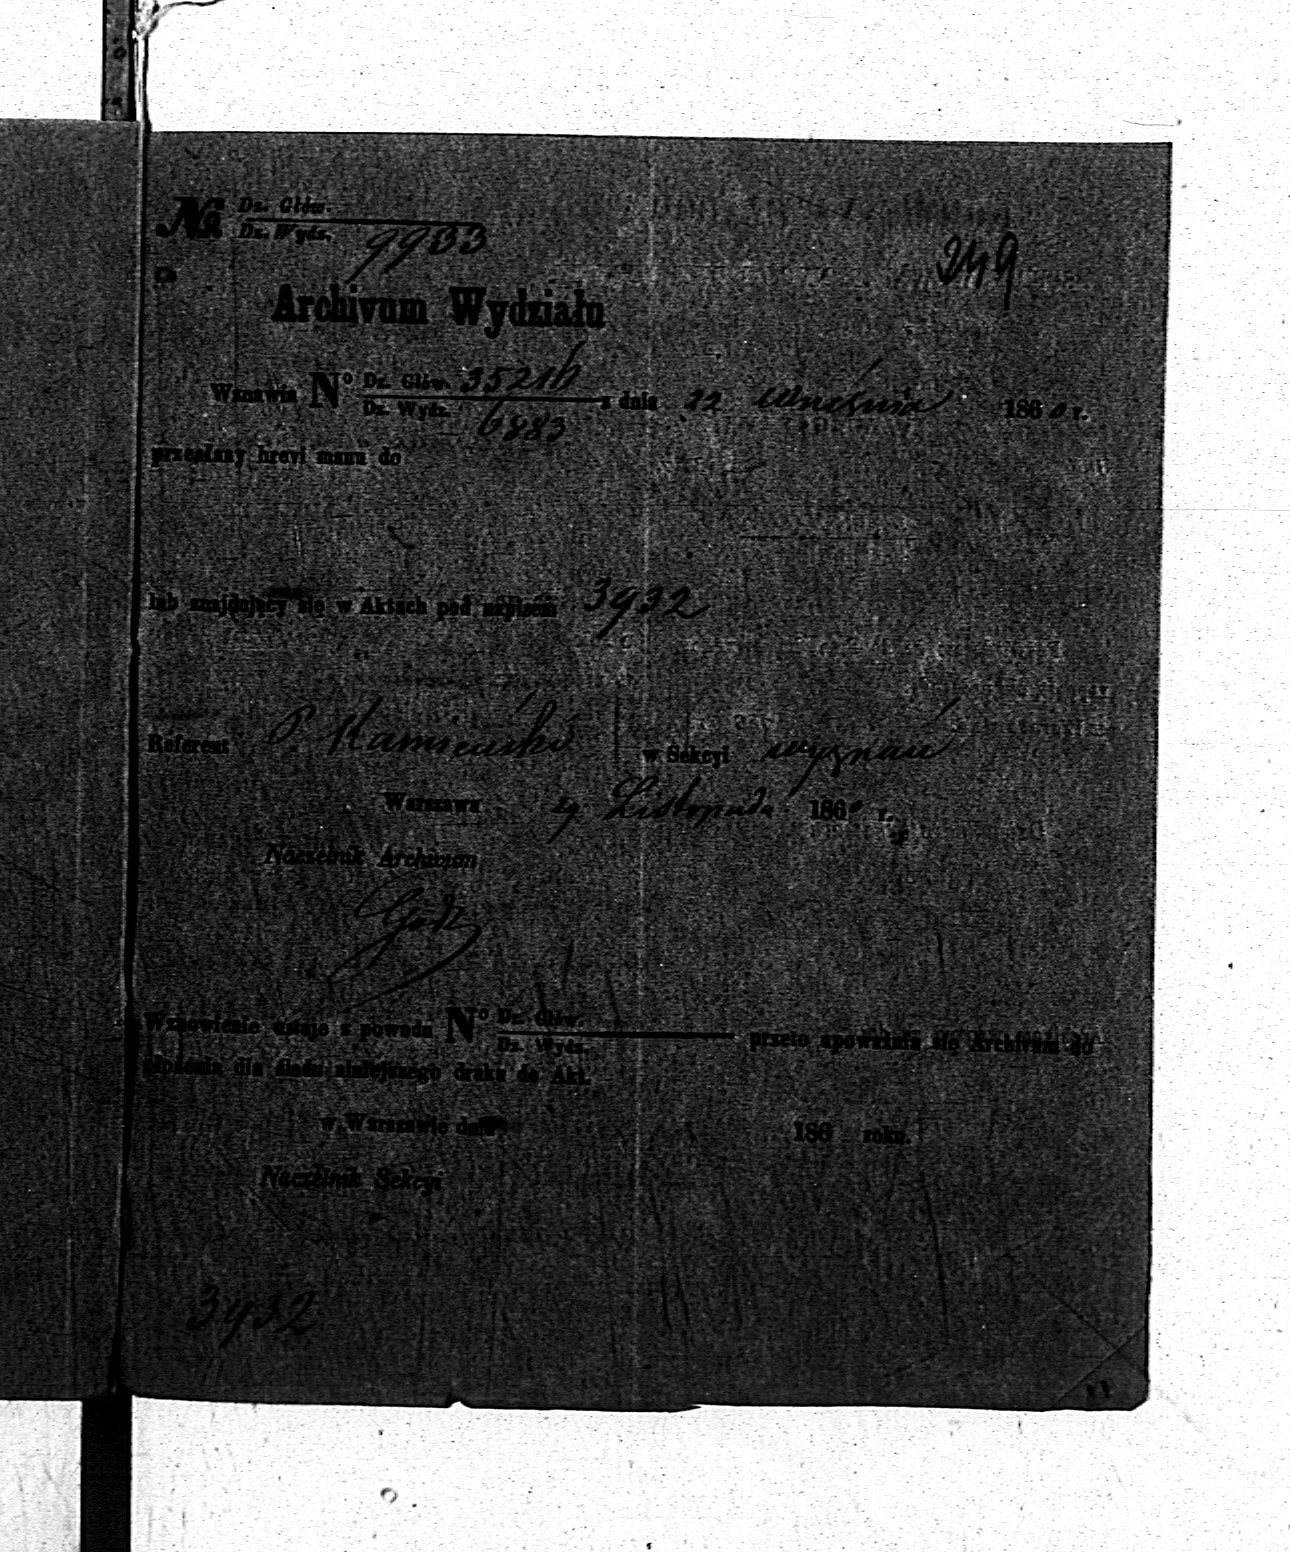 № Dz. Głów.
Dz. Wydz. 9933
249
Archivum Wydziału
Wznawia N° Dz. Głów. 35216
Dz. Wydz. 6883 z dnia 22 Września 1860 r.
przesłany brevi manu do
lub znajdujący się w Aktach pod napisem 3932
Referent P. Kamieński w Sekcyi wyznań
Warszawa Listopada 1860 r.
Naczelnik Archivum
Wznowienie ustaje z powodu N° Dz. Głów.
Dz. Wydz. przeto upoważnia się Archivum do
złożenia dla śladu niniejszego druku do Akt.
w Warszawie dnia 186 roku.
Naczelnik Sekcyi
3932